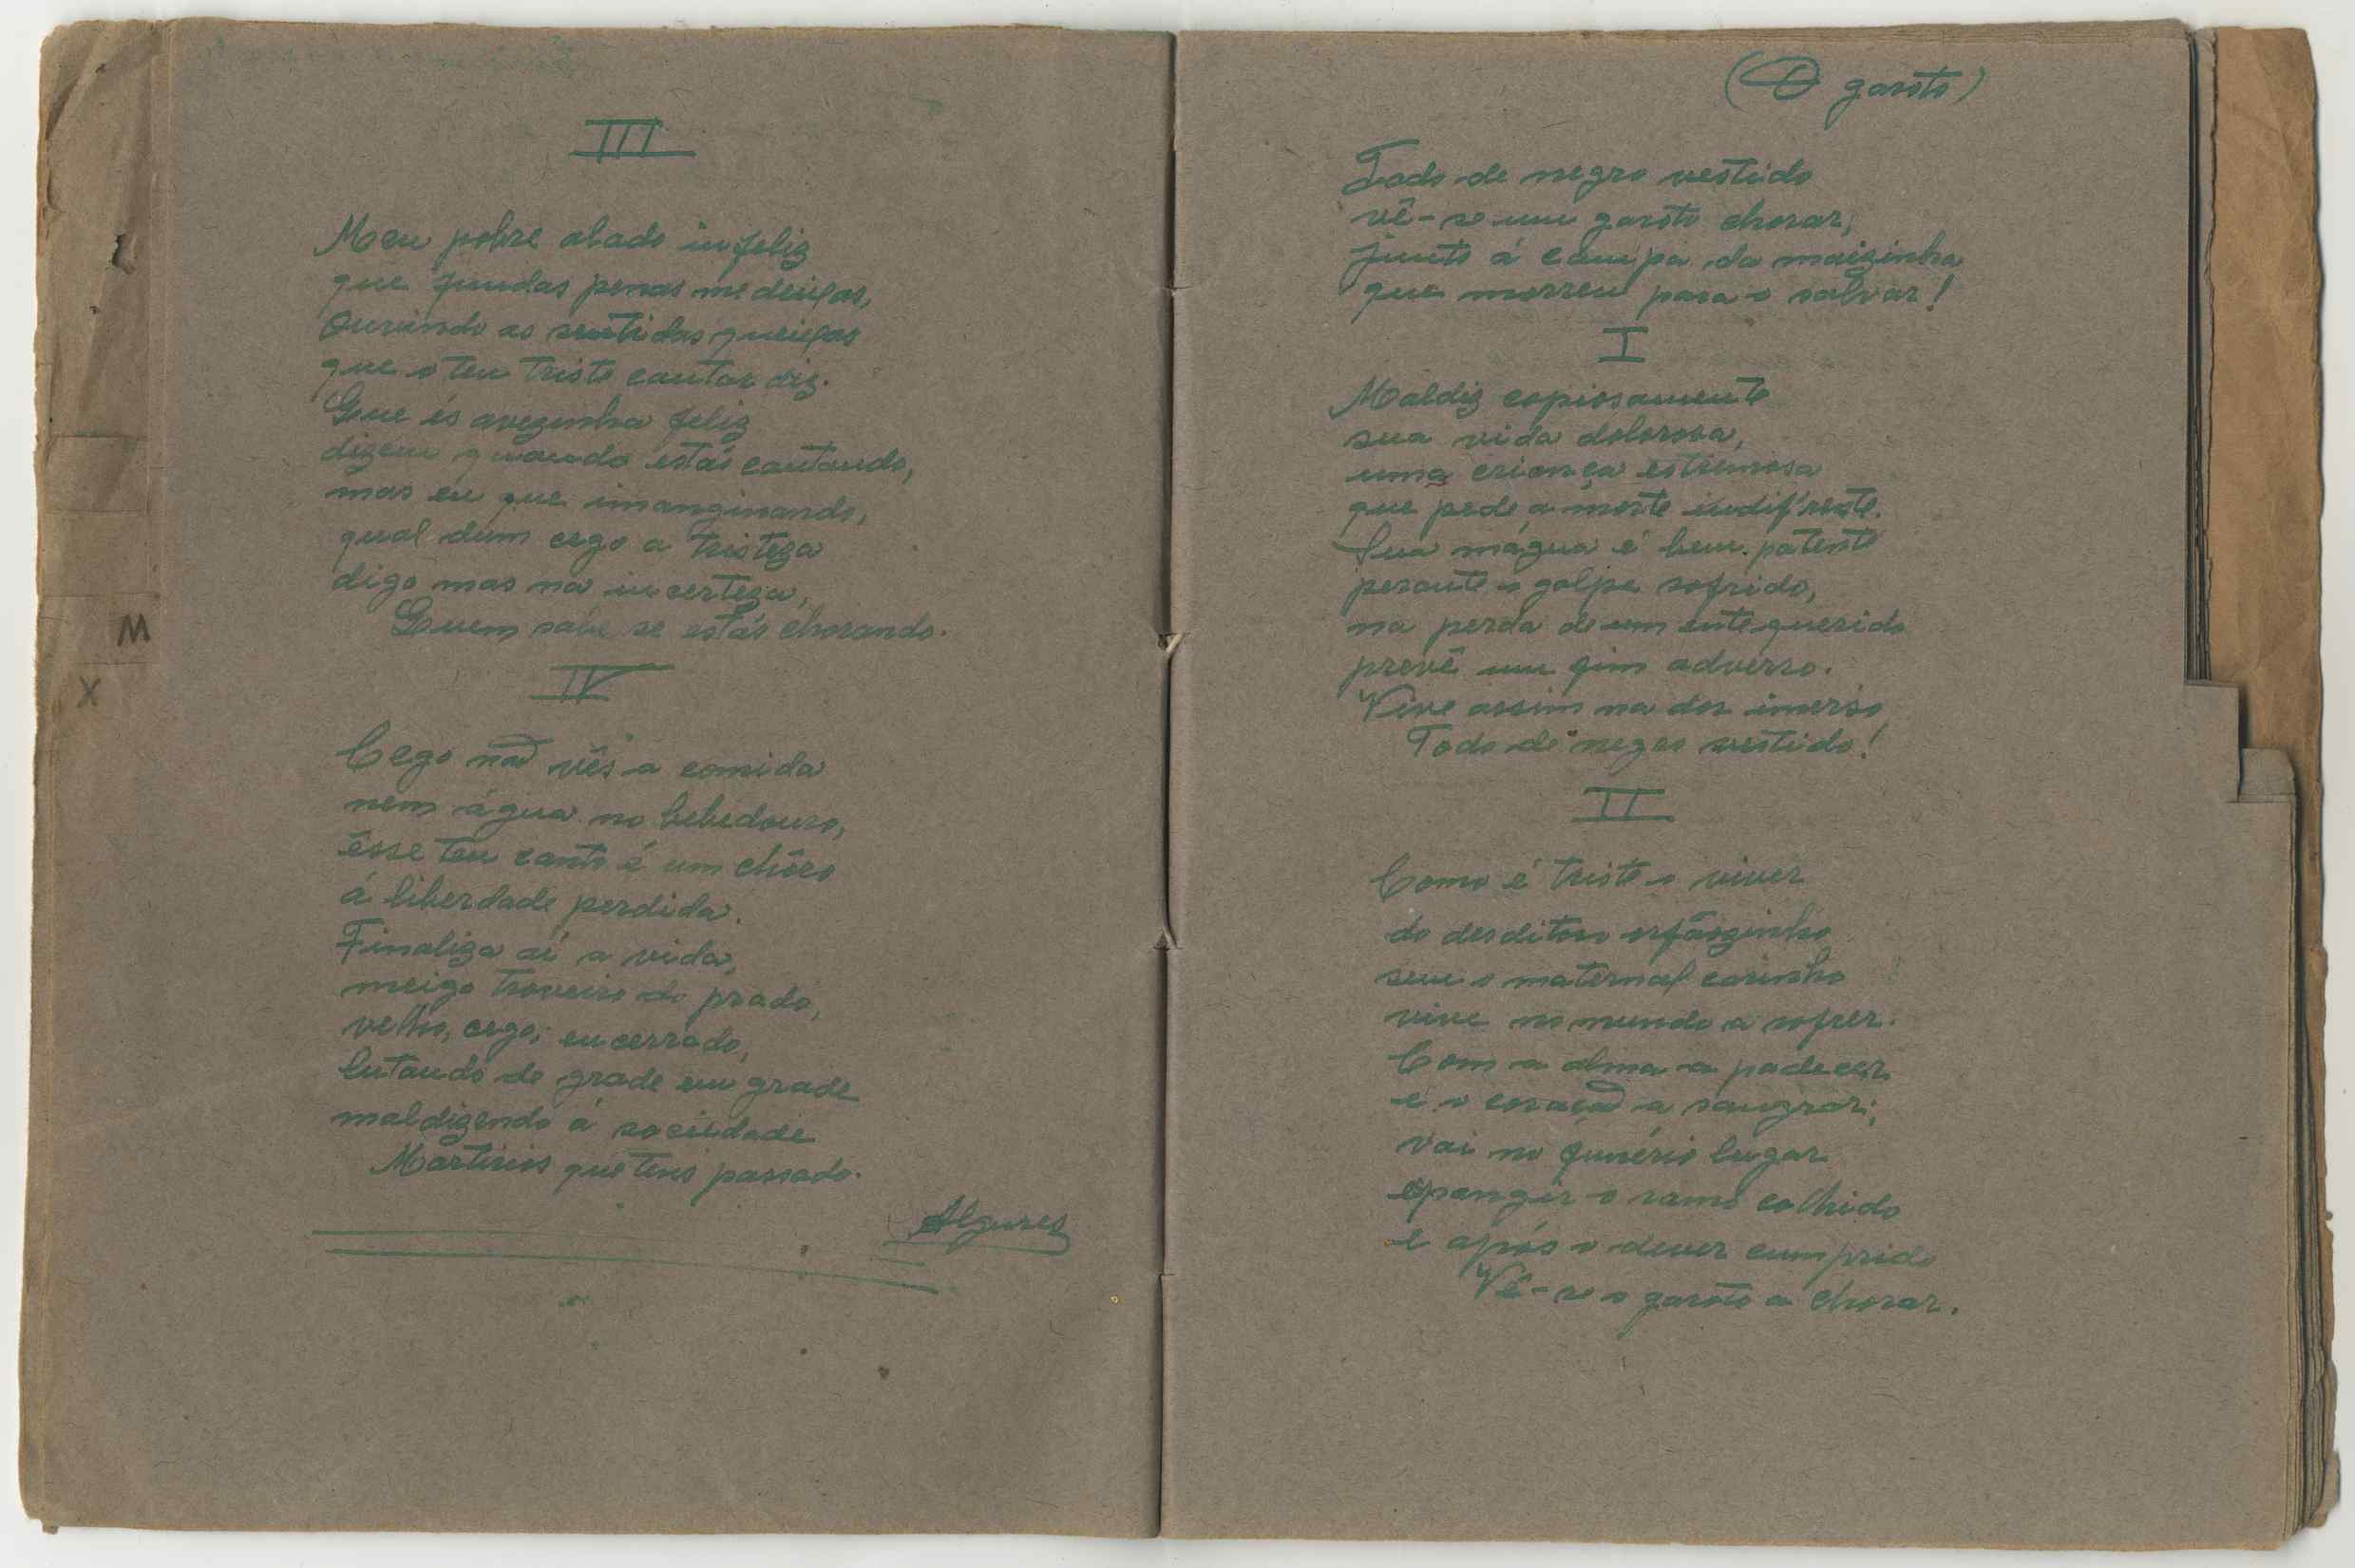 III
Meu pobre alado infeliz
que fundas penas me deixas,
Ouvindo as sentidas queixas
que o teu triste cantar diz.
Que és avezinha feliz
dizem quando estás cantando,
mas eu que imanginando,
qual dum cego a tristeza
digo mas na incerteza,
Quem sabe se estás chorando.
IV
Cego não vês a comida
nem água no bebedouro,
êsse teu canto é um chôro
á liberdade perdida.
Finaliza aí a vida,
meigo troveiro do prado,
velho, cego; encerrado,
lutando de grade em grade
maldizendo á sociedade
Martirios que tens passado.
Algures
M
X
(O garoto)
Todo de negro vestido
vê-se um garoto chorar,
junto á campa da maizinha
que morreu para o salvar!
I
Maldiz copiosamente
sua vida dolorosa,
uma criança estremosa
que pede a morte indif'rente.
Sua mágua é bem patente
perante o golpe sofrido,
na perda de um ente querido
prevê um fim adverso.
Vive assim na dor imerso
Todo de negro vestido!
II
Como é triste o viver
do desditoso orfãozinho
sem o maternal carinho
vive no mundo a sofrer.
Com a alma a padecer
e o coração a sangrar;
vai no funério lugar
espangir o ramo colhido
e após o dever cumprido
Vê-se o garoto a chorar.